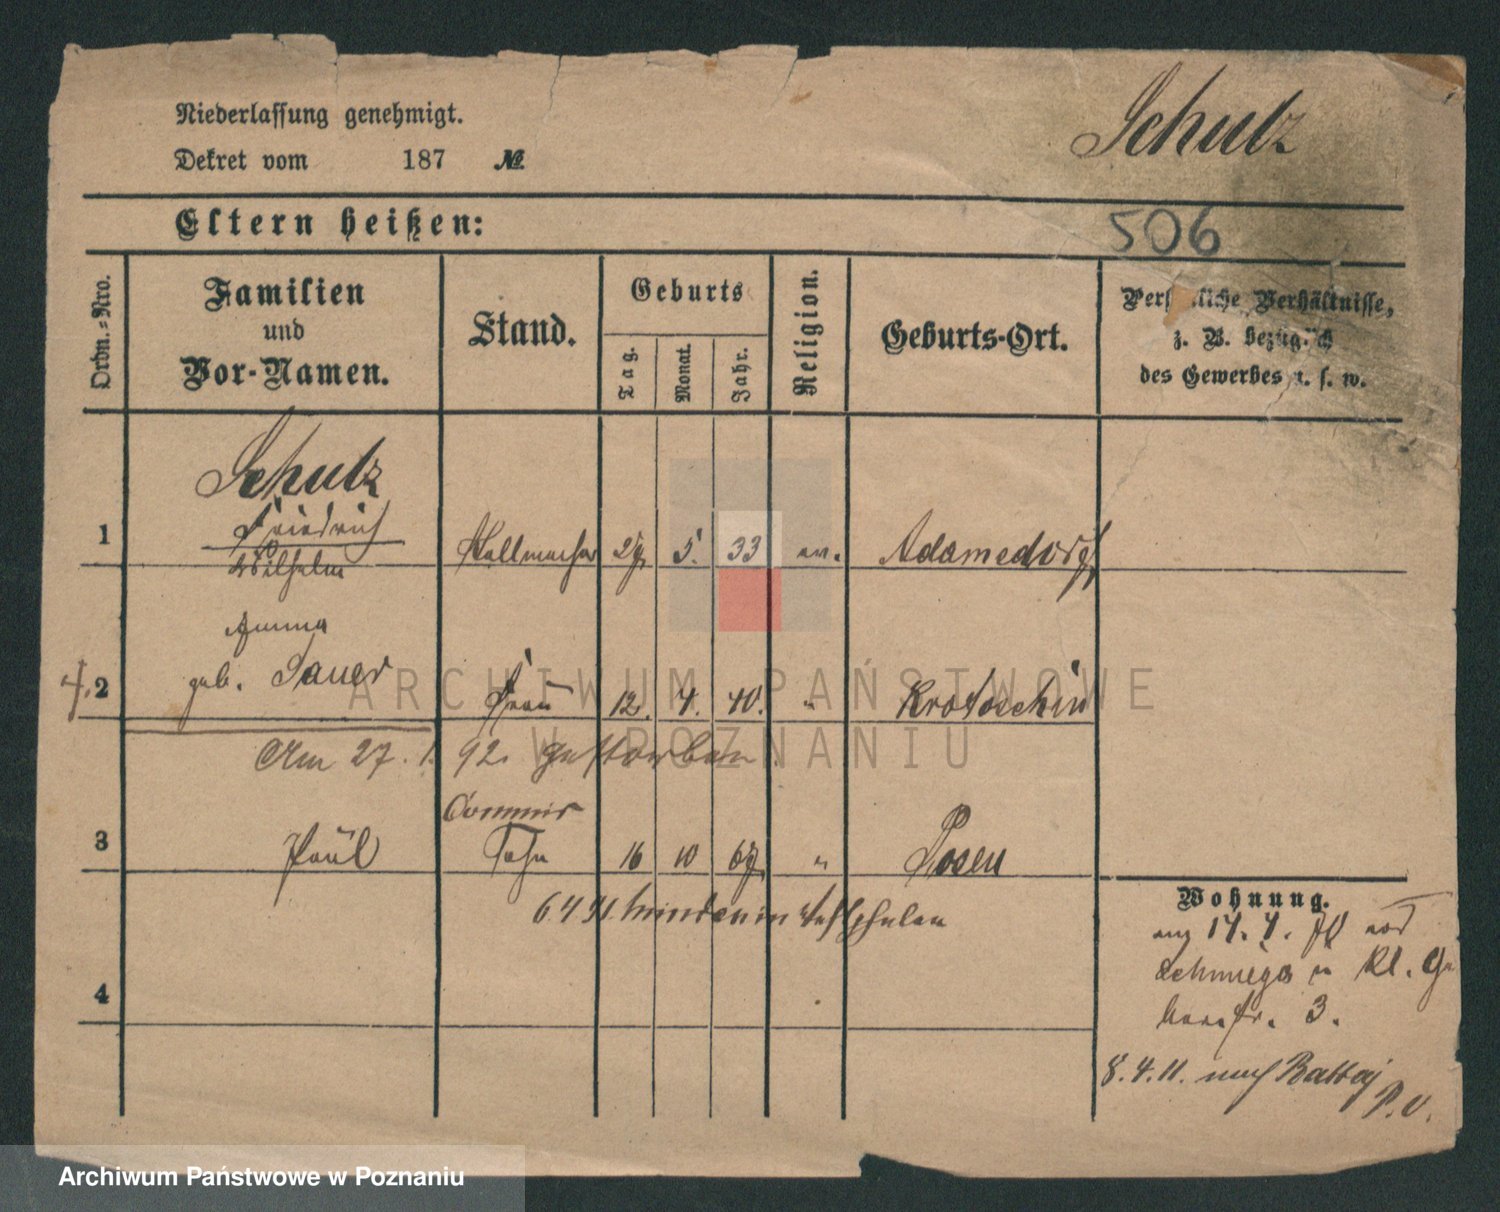 Niederlassung genehmigt.
Schulz
Dekret vom 187 №
Eltern heißen:
506
Ordn.-Nro.
Familien und Vor-Namen.
Stand.
Geburts
Tag.
Monat.
Jahr.
Religion.
Geburts-Ort.
Persönliche Verhältnisse,
z. B. bezüglich
des Gewerbes u. s. w.
Schulz
1 Friedrich
Wilhelm
Stellmacher 29. 5. 33 ev. Adamsdorf
Emma
2 geb. Sauer Frau 12. 4. 40. " Krotoschin
Am 27. 1. 92. gestorben
Commis
3 Paul Sohn 16 10 67 " Posen
6 4 91. Minden in Westphalen
Wohnung.
4
3.
8. 4. 11. nach P. V.
ARCHIWUM PAŃSTWOWE
W POZNANIU
Archiwum Państwowe w Poznaniu